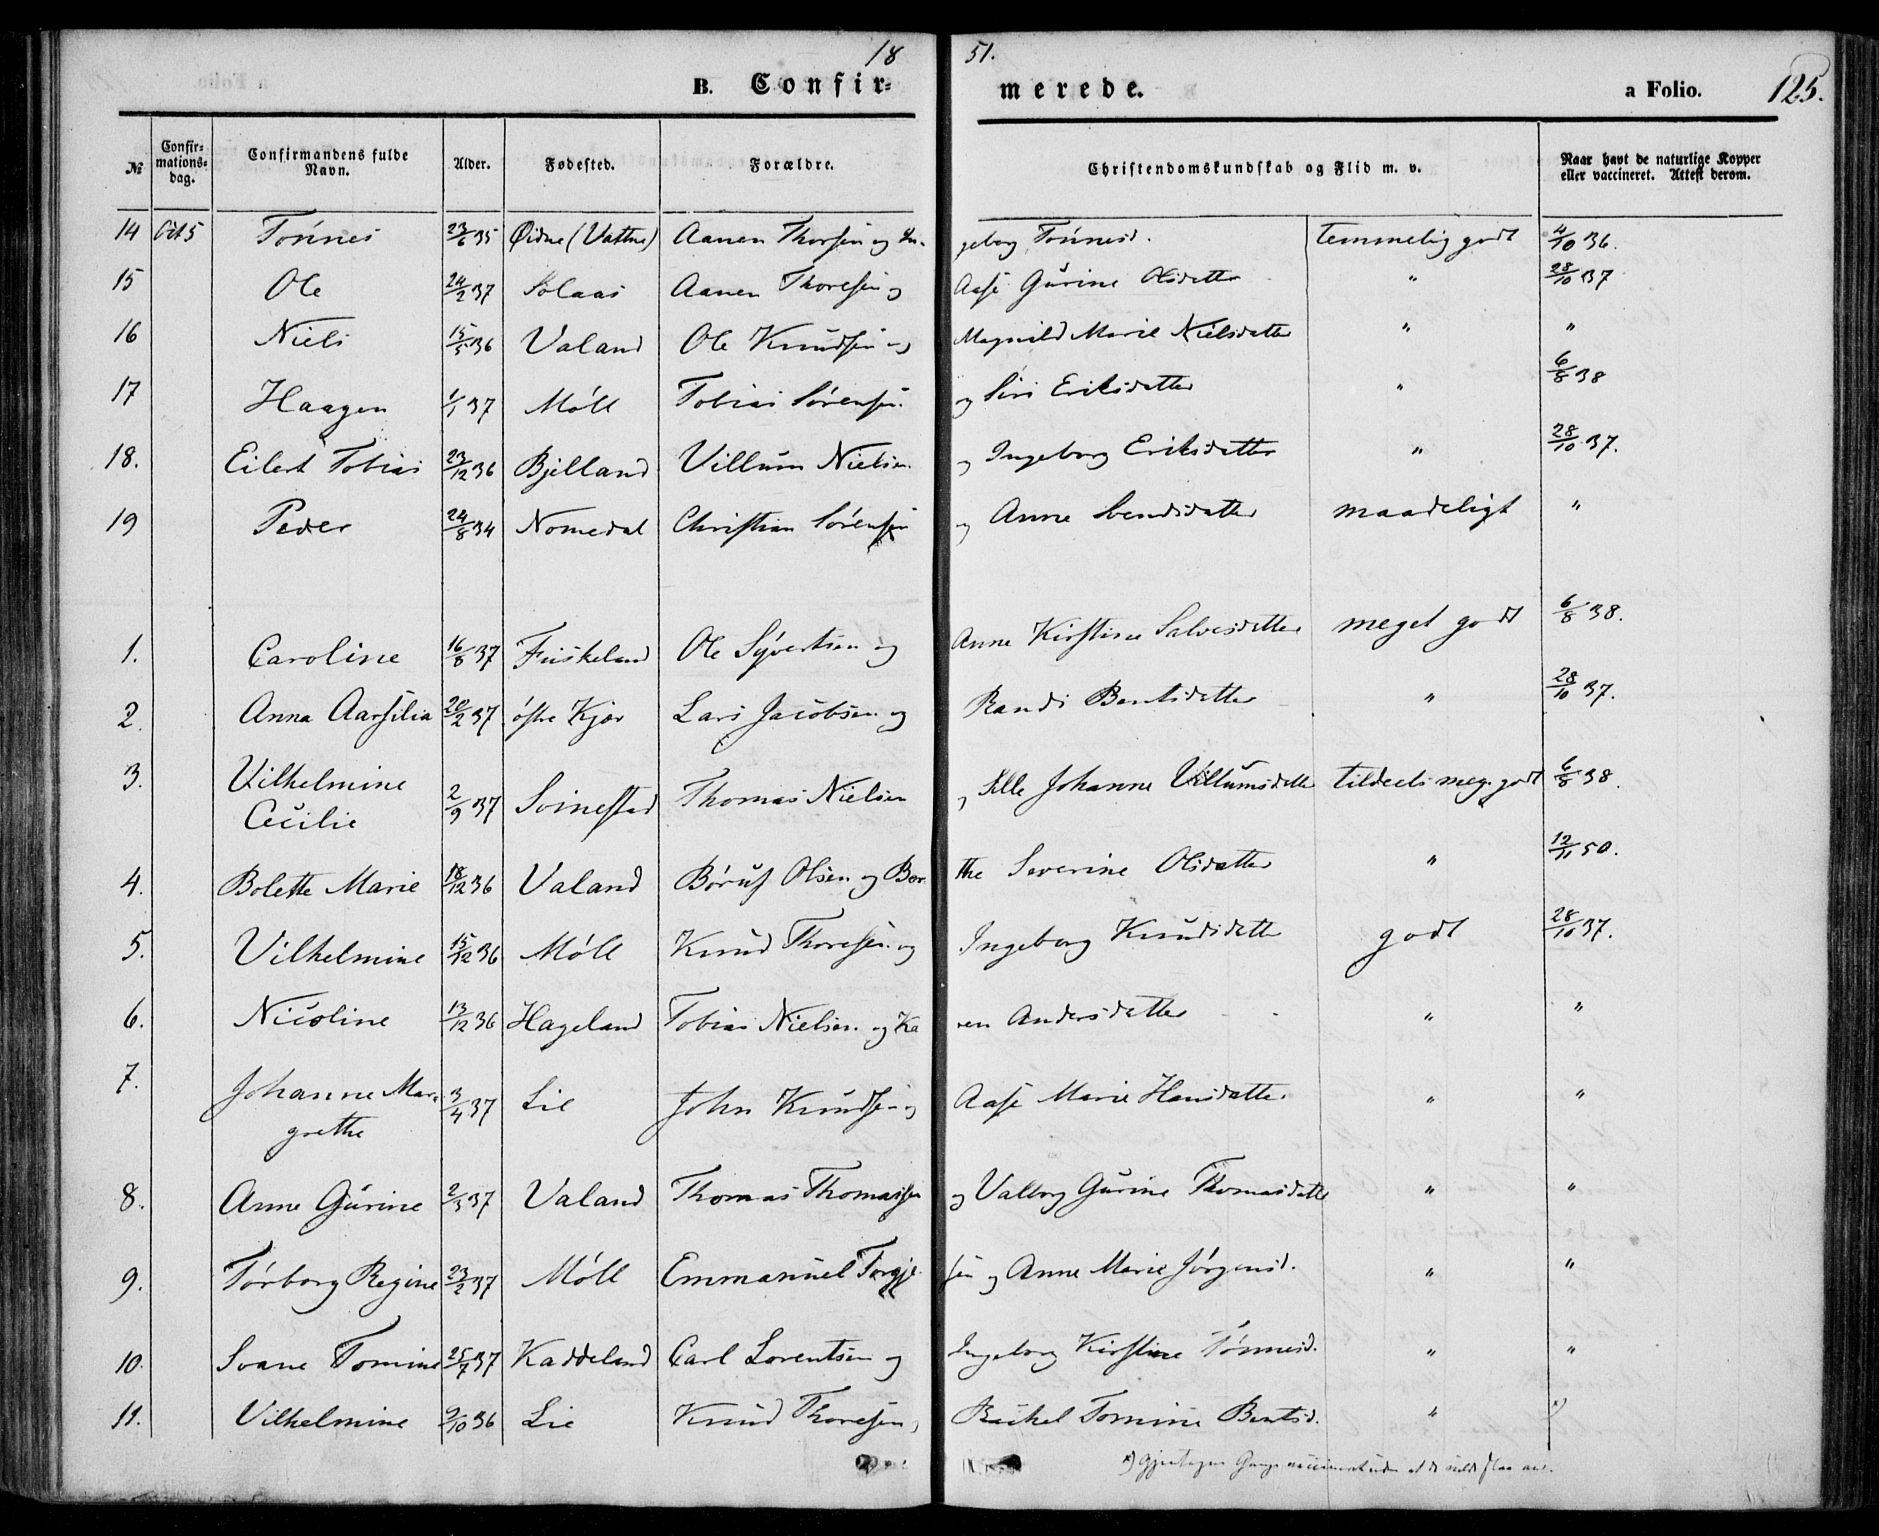 18 51.
B. Confir= merede. a Folio. 125.
№ Confir=mations=dag. Confirmandens fulde Navn. Alder. Fødested. Forældre. Christendomskundskab og Flid m. v. Naar havt de naturlige Kopper eller vaccineret. Attest derom.
14 Oct 5 Tönnes 23/6 35 Øidne (Vattne) Aanen Thorsen og In- geborg Tönnesd. temmelig godt 4/10 36.
15 Ole 24/2 37 Solaas Aanen Thoresen og Aase Gŭrine Olsdatter " 28/10 37
16 Niels 15/5 36 Valand Ole Knŭdsen og Magnild Marie Nielsdatter " "
17 Haagen 1/1 37 Möll Tobias Sörensen. og Siri Eriksdatter " 6/8 38
18. Eilert Tobias 23/12 36 Bjelland Villum Nielsen. og Ingeborg Eriksdatter " 28/10 37.
19 Peder 24/8 34 Nomedal Christian Sörensen og Anne Svendsdatter maadeligt "
1. Caroline 16/8 37 Fuskeland Ole Syvertsen og Anne Kirstine Salvesdatter meget godt 6/8 38.
2. Anna Aarsilia 20/2 37 østre Kjær Lars Jacobsen og Randi Bentsdatter " 28/10 37.
3. Vilhelmine Cecilie 2/9 37 Svinestad Thomas Nielsen og Elle Johanne Villŭmsdatter tildeels meg. godt 6/8 38.
4. Bolette Marie 18/12 36 Valand Börŭf Olsen og Ber- the Severine Olsdatter " 12/11 50.
5. Vilhelmine 15/12 36 Möll Knŭd Thoresen og Ingeborg Knŭdsdatter godt 28/10 37.
6. Nicoline 13/12 36 Hageland Tobias Nielsen og Ka ren Andersdatter " "
7. Johanne Mar- grethe 3/4 37 Lie John Knŭdsen og Aase Marie Hansdatter " "
8. Anne Gŭrine 2/3 37 Valand Thomas Thomassen og Valborg Gŭrine Thomasdatter " "
9. Törborg Regine 23/2 37 Möll Emmanŭel Torgje- sen og Anne Marie Jörgensd. " "
10. Svane Tomine 25/7 37 Kaddeland Carl Lorentsen og Ingeborg Kirstine Tönnesd. " "
11. Vilhelmine 9/10 36 Lie Knŭd Thoresen, Rachel Tomine Bentsd. " x)
x) Gange vaccineret uden at de vilde slaa an.